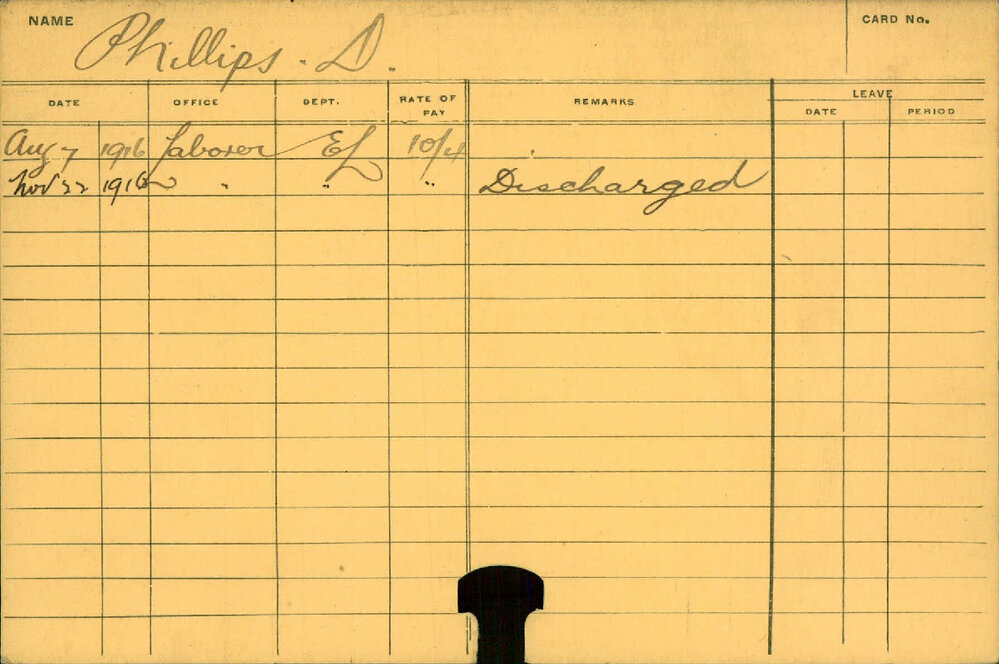 NAME Phillips. D. CARD No.
DATE OFFICE DEPT. RATE OF PAY REMARKS LEAVE
DATE PERIOD
Aug 7 1916 Laborer EL 10/4
Nov 22 1916 " " " Discharged